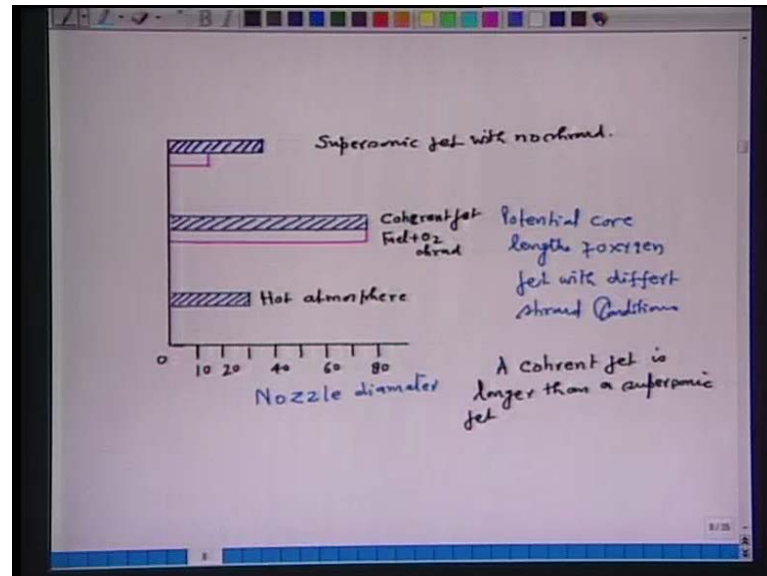 B I
Supersonic jet with no shroud.
Coherent jet
Fuel+O2
shroud
Potential core
lengths of oxygen
jet with differt
shroud Conditions
Hot atmosphere
0 10 20 40 60 80
Nozzle diameter
A cohrent jet is
longer than a supersonic
jet
8/35
8